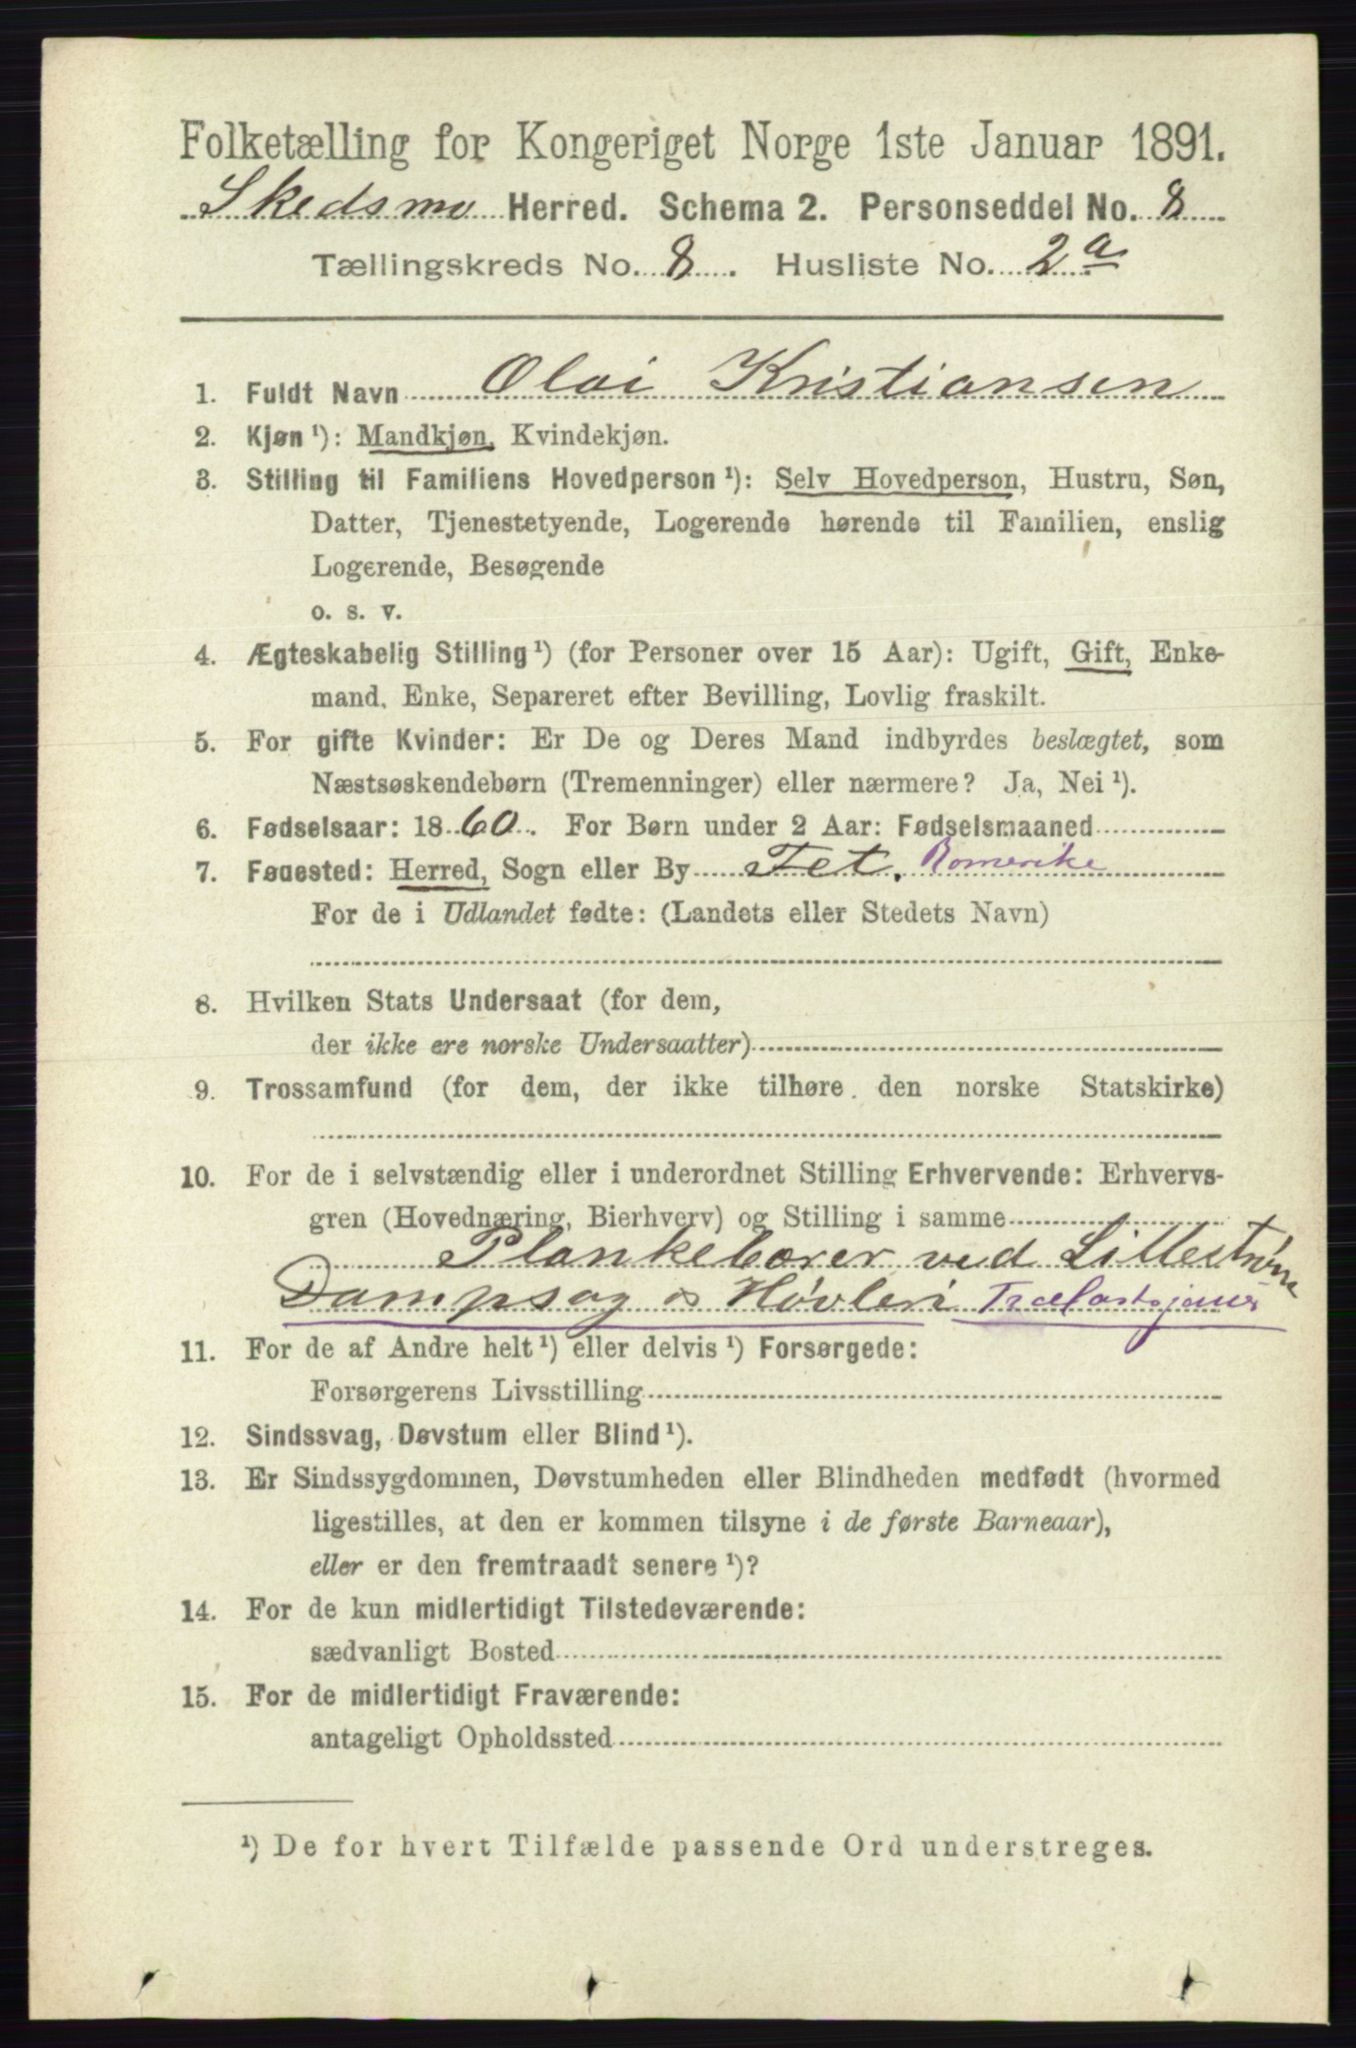 Folketælling for Kongeriget Norge 1ste Januar 1891.
Skedsmo Herred. Schema 2. Personseddel No. 8
Tællingskreds No. 8. Husliste No. 2a
1. Fuldt Navn Olai Kristiansen
2. Kjøn ¹): Mandkjøn, Kvindekjøn.
3. Stilling til Familiens Hovedperson ¹): Selv Hovedperson, Hustru, Søn,
Datter, Tjenestetyende, Logerende hørende til Familien, enslig
Logerende, Besøgende
o. s. v.
4. Ægteskabelig Stilling ¹) (for Personer over 15 Aar): Ugift, Gift, Enke-
mand, Enke, Separeret efter Bevilling, Lovlig fraskilt.
5. For gifte Kvinder: Er De og Deres Mand indbyrdes beslægtet, som
Næstsøskendebørn (Tremenninger) eller nærmere? Ja, Nei ¹).
6. Fødselsaar: 1860. For Børn under 2 Aar: Fødselsmaaned
7. Fødested: Herred, Sogn eller By Fet. Romerike
For de i Udlandet fødte: (Landets eller Stedets Navn)
8. Hvilken Stats Undersaat (for dem,
der ikke ere norske Undersaatter)
9. Trossamfund (for dem, der ikke tilhøre den norske Statskirke)
10. For de i selvstændig eller i underordnet Stilling Erhvervende: Erhvervs-
gren (Hovednæring, Bierhverv) og Stilling i samme
Plankebærer ved Lillestrøm
Dampsag & Høvleri Trælastsjauer
11. For de af Andre helt ¹) eller delvis ¹) Forsørgede:
Forsørgerens Livsstilling
12. Sindssvag, Døvstum eller Blind ¹).
13. Er Sindssygdommen, Døvstumheden eller Blindheden medfødt (hvormed
ligestilles, at den er kommen tilsyne i de første Barneaar),
eller er den fremtraadt senere ¹)?
14. For de kun midlertidigt Tilstedeværende:
sædvanligt Bosted
15. For de midlertidigt Fraværende:
antageligt Opholdssted
¹) De for hvert Tilfælde passende Ord understreges.